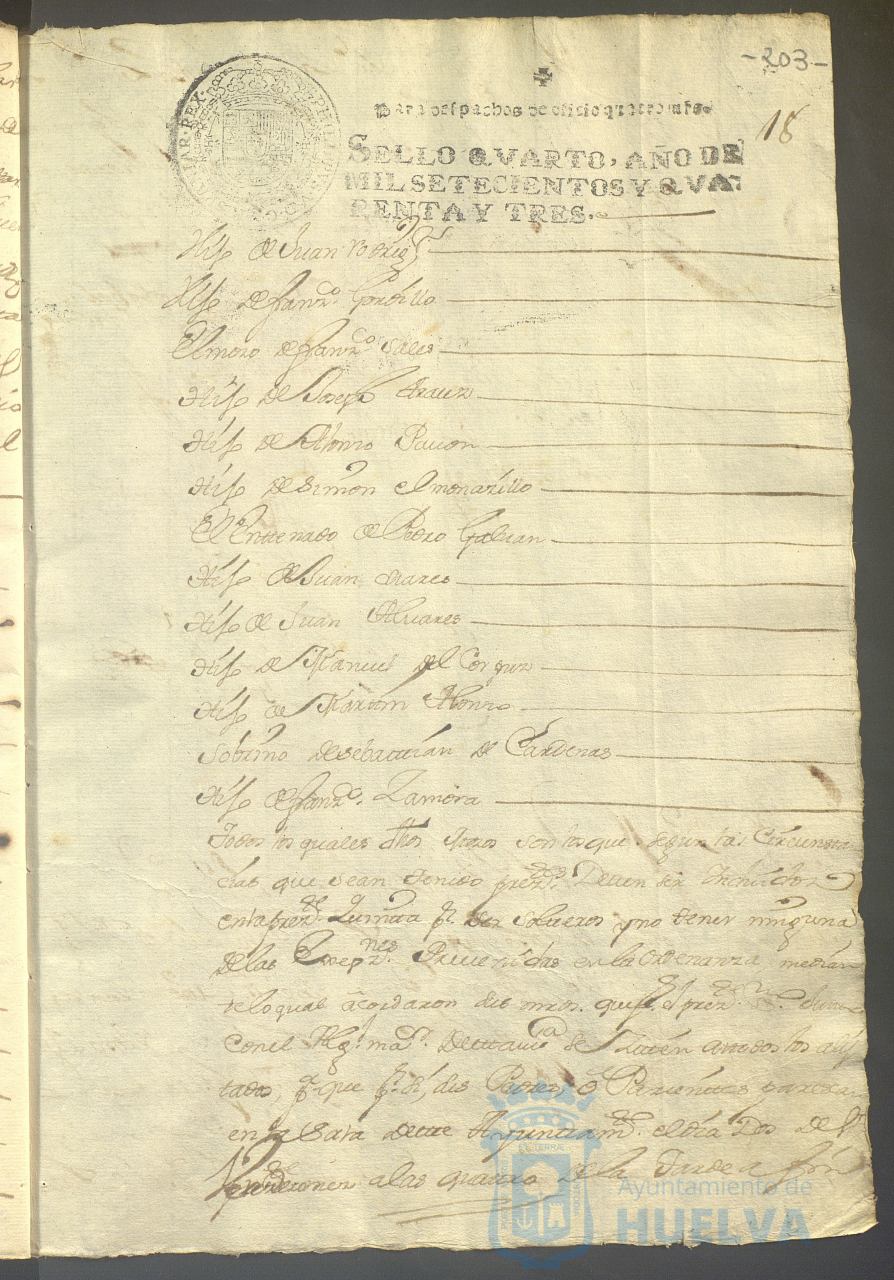 -203-
18
Para despachos de oficio quatro mrs.
SELLO QVARTO, AÑO DE
MIL SETECIENTOS Y QVA-
RENTA Y TRES.
Hijo de Juan Rodrigz
Hijo de Franco. Gordillo
El mozo de Franco Sales
Hijo de Joseph Arauz
Hijo de Alonso Pavon
Hijo de Simon el monarillo
El Entenado de Pedro Galvan
Hijo de Juan
Hijo de Juan Alvares
Hijo de Manuel del
Hijo de Martin Alonso
Sobrino de Sebastian de Cardenas
Hijo de Franco. Zamora
Todos los quales dhos mozos son los que segun las Circunstan
cias que sean tenido presz. Deven ser Incluidos
en la preste. Quinta pr. ser solteros y no tener ninguna
de las Excepznes. Prevenidas en la ordenanza median
te lo qual acordaron sus mrds. que
Con el Algl. maor. de esta va. se Siten a todos los alis
tados, pa. que pr. si, sus Padres, o Parientes parezcan
en la Sala de este Ayuntamto. el dia Dos de
a las quatro de la Tarde a fin
Ayuntamiento de
HUELVA